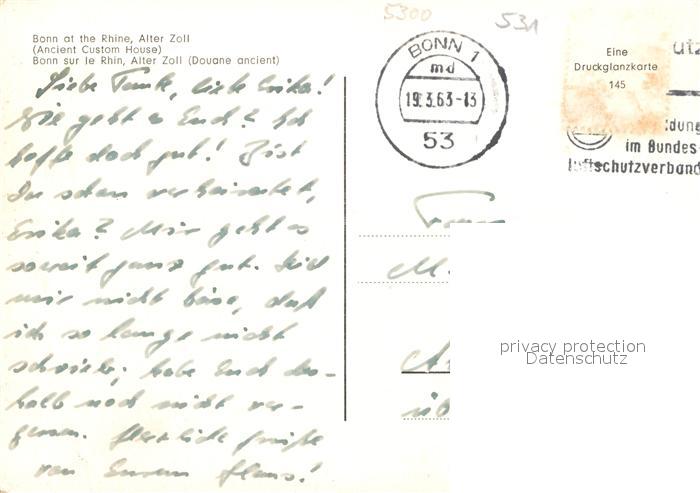 5300
531
Bonn at the Rhine, Alter Zoll
(Ancient Custom House)
Bonn sur le Rhin, Alter Zoll (Douane ancient)
BONN 1
md
19.3.63-13
53
utz
Eine
Druckglanzkarte
145
dung
im Bundes-
luftschutzverband
Liebe Tante, liebe Erika!
Wie geht es Euch? Ich
hoffe doch gut! Bist
Du schon verheiratet,
Erika? Mir geht es
soweit ganz gut. Seid
mir nicht böse, daß
ich so lange nicht
schrieb; habe Euch des-
halb noch nicht ver-
gessen. Herzliche Grüße
von Eurem Hans!
Frau
M.
A
üb
privacy protection
Datenschutz